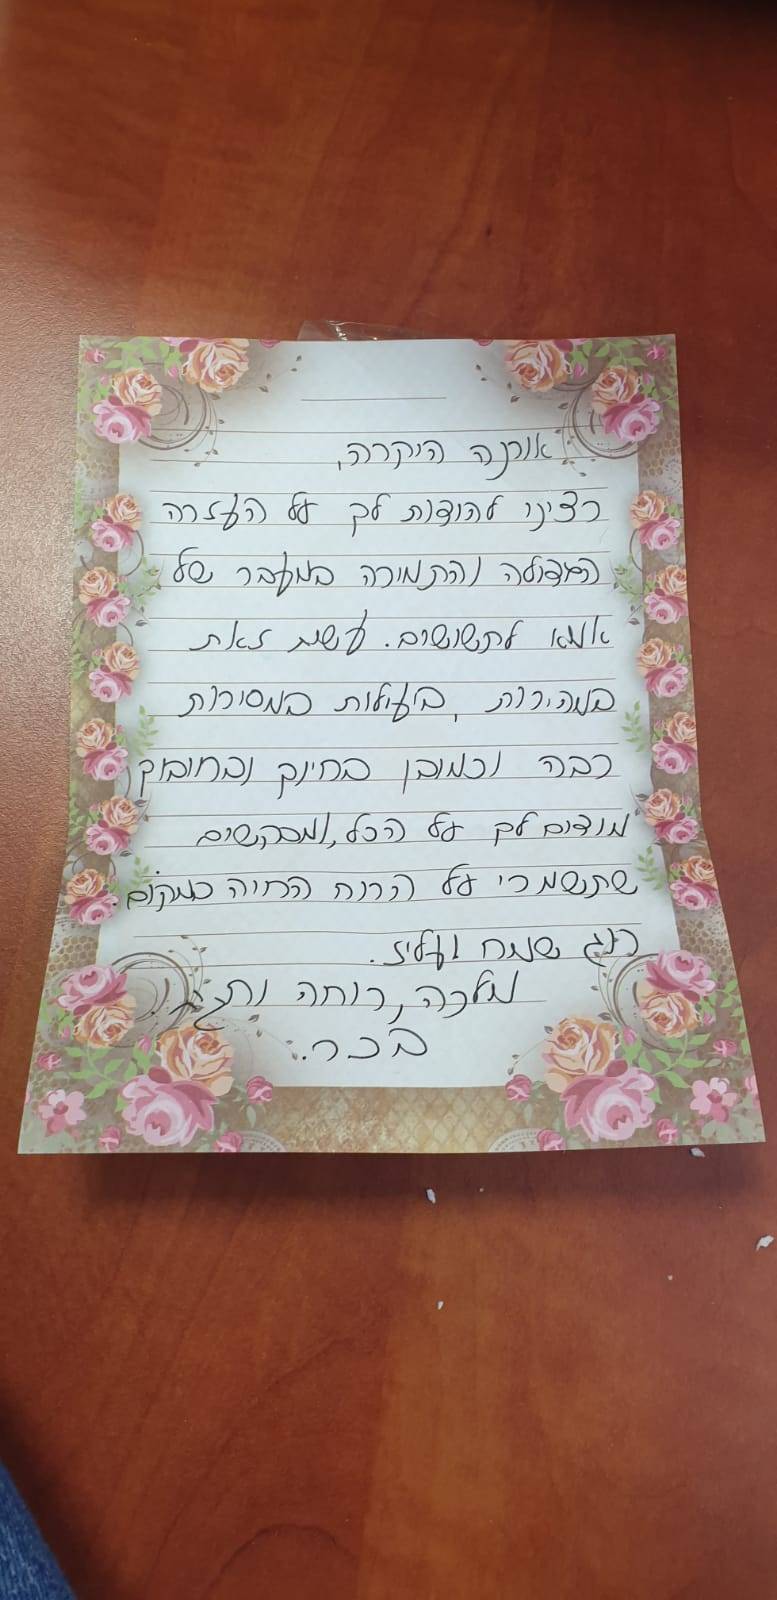 אורנה היקרה,
רצינו להודות לך על העזרה
הגדולה והתמיכה במעבר של
אמא לתשושים. עשית זאת
במהירות, ביעילות במסירות
רבה וכמובן בחינך ובחובוק
מודים לך על הכל, ומבקשים
שתשמרי על הרוח החיה במקום.
חג שמח ועליז.
מלכה, רוחה
בכר.